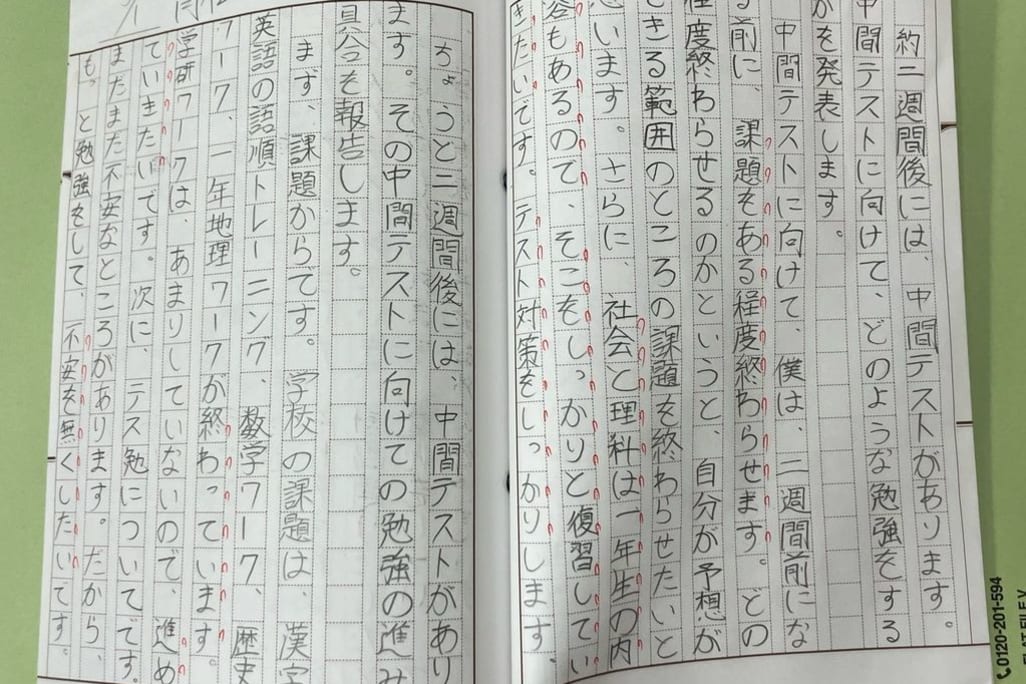 約二週間後には、中間テストがあります。
中間テストに向けて、どのような勉強をする
かを発表します。
中間テストに向けて、僕は、二週間前にな
る前に、課題をある程度終わらせます。どの
程度終わらせるのかというと、自分が予想が
できる範囲のところの課題を終わらせたいと
思います。さらに、社会と理科は一年生の内
容もあるので、そこをしっかりと復習してい
きたいです。テスト対策をしっかりします。
ちょうど二週間後には、中間テストがあり
ます。その中間テストに向けての勉強の進み
具合を報告します。
まず、課題からです。学校の課題は、漢字
英語の語順トレーニング、数学ワーク、歴史
ワーク、一年地理ワークが終わっています。
学研ワークは、あまりしていないので、進め
ていきたいです。次に、テス勉についてです。
まだまだ不安なところがあります。だから、
もっと勉強をして、不安を無くしたいです。
0120-201-594